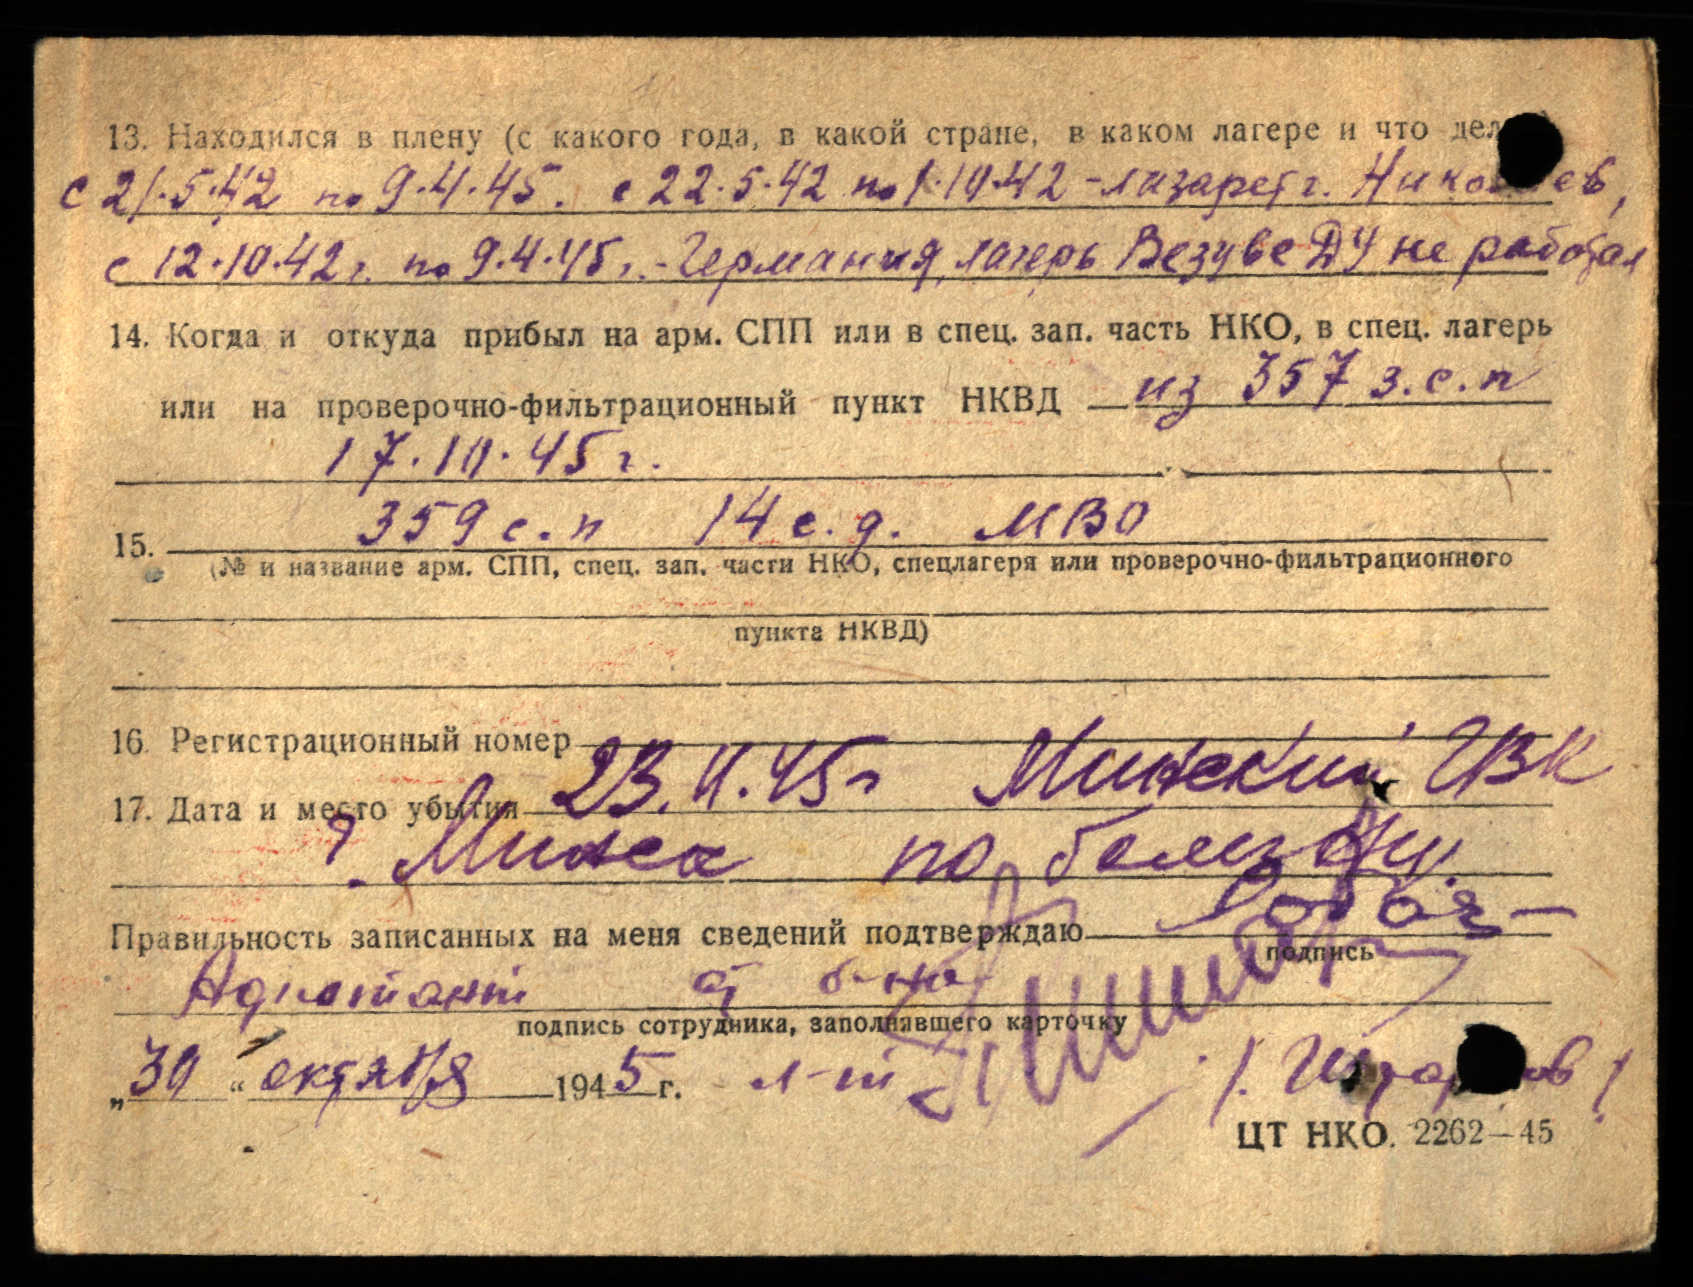 13. Находился в плену (с какого года, в какой стране, в каком лагере и что дел
с 21.5.42 по 9.4.45. с 22.5.42 по 1.10.42 - лазарет г.
с 12.10.42 г. по 9.4.45 г. - Германия, лагерь Везуве ДУ не работал
14. Когда и откуда прибыл на арм. СПП или в спец. зап. часть НКО, в спец. лагерь
или на проверочно-фильтрационный пункт НКВД из 357 з.с.п
17.10.45 г.
15. 359 с.п 14 с.д. МВО
(№ и название арм. СПП, спец. зап. части НКО, спецлагеря или проверочно-фильтрационного
пункта НКВД)
16. Регистрационный номер
17. Дата и место убытия 23.11.45 г Минский ГВК
г. Минск по
Правильность записанных на меня сведений подтверждаю
подпись
Адъютант б-на
подпись сотрудника, заполнявшего карточку
„30“ октября 1945 г. л-т
ЦТ НКО. 2262—45